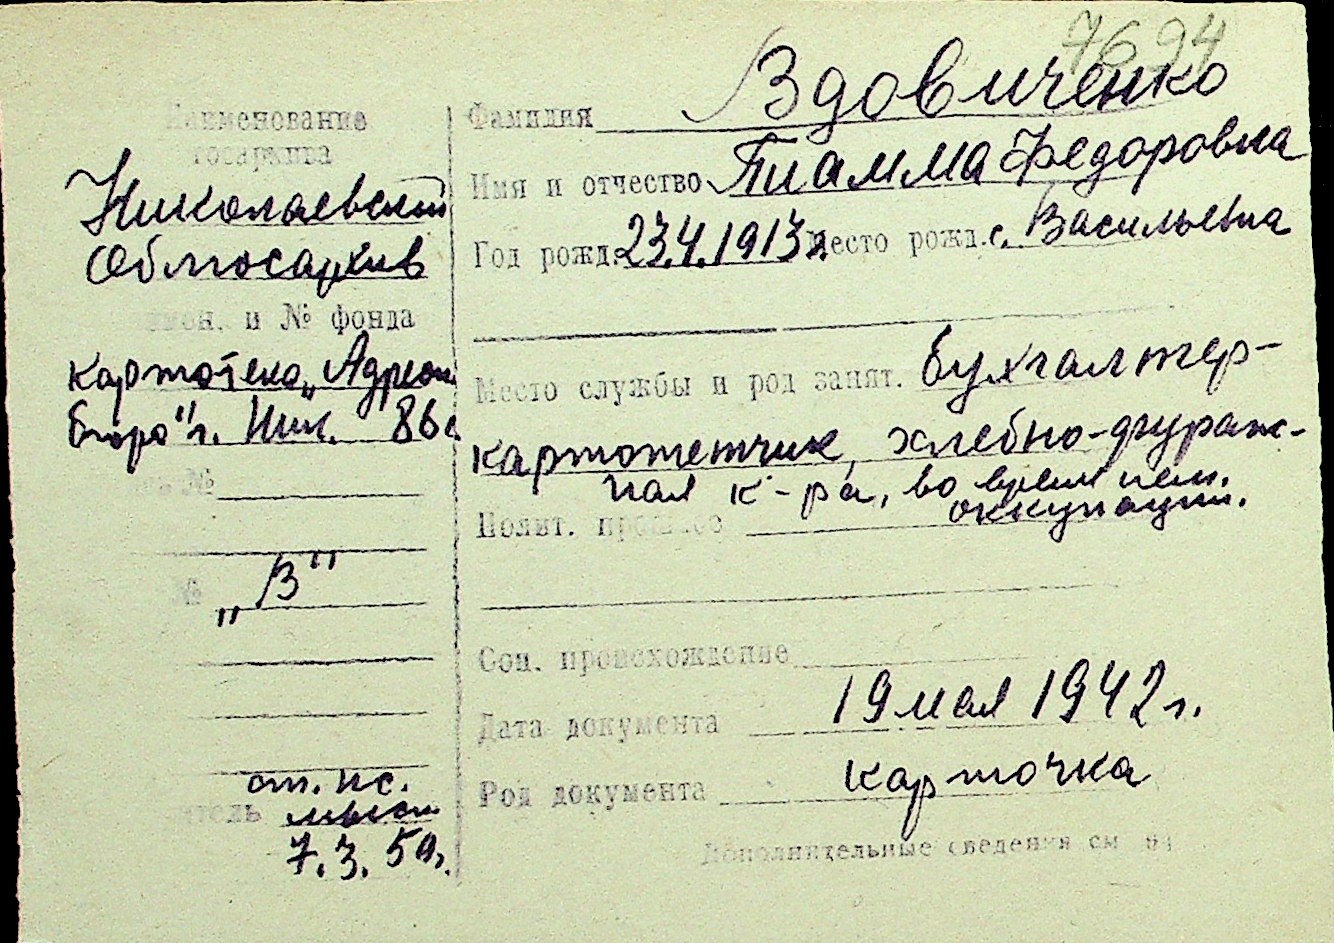 7694
Наименование
госархива
Николаевский
Облгосархив
имен. и № фонда
картотека „Адресн.
бюро" г. Ник. 86с
№
№ „В"
от. нс.
7.3. 50г.
Фамилия Вдовиченко
Имя и отчество Тиамма Федоровна
Год рожд. 23.4.1913 Место рожд. с. Васильевка
Место службы и род занят. бухгалтер-
картотетчик, хлебно-фураж-
ная к-ра, во время нем.
оккупации.
Полит. прошлое
Соц. происхождение
Дата документа 19 мая 1942 г.
Род документа карточка
Дополнительные сведения см на